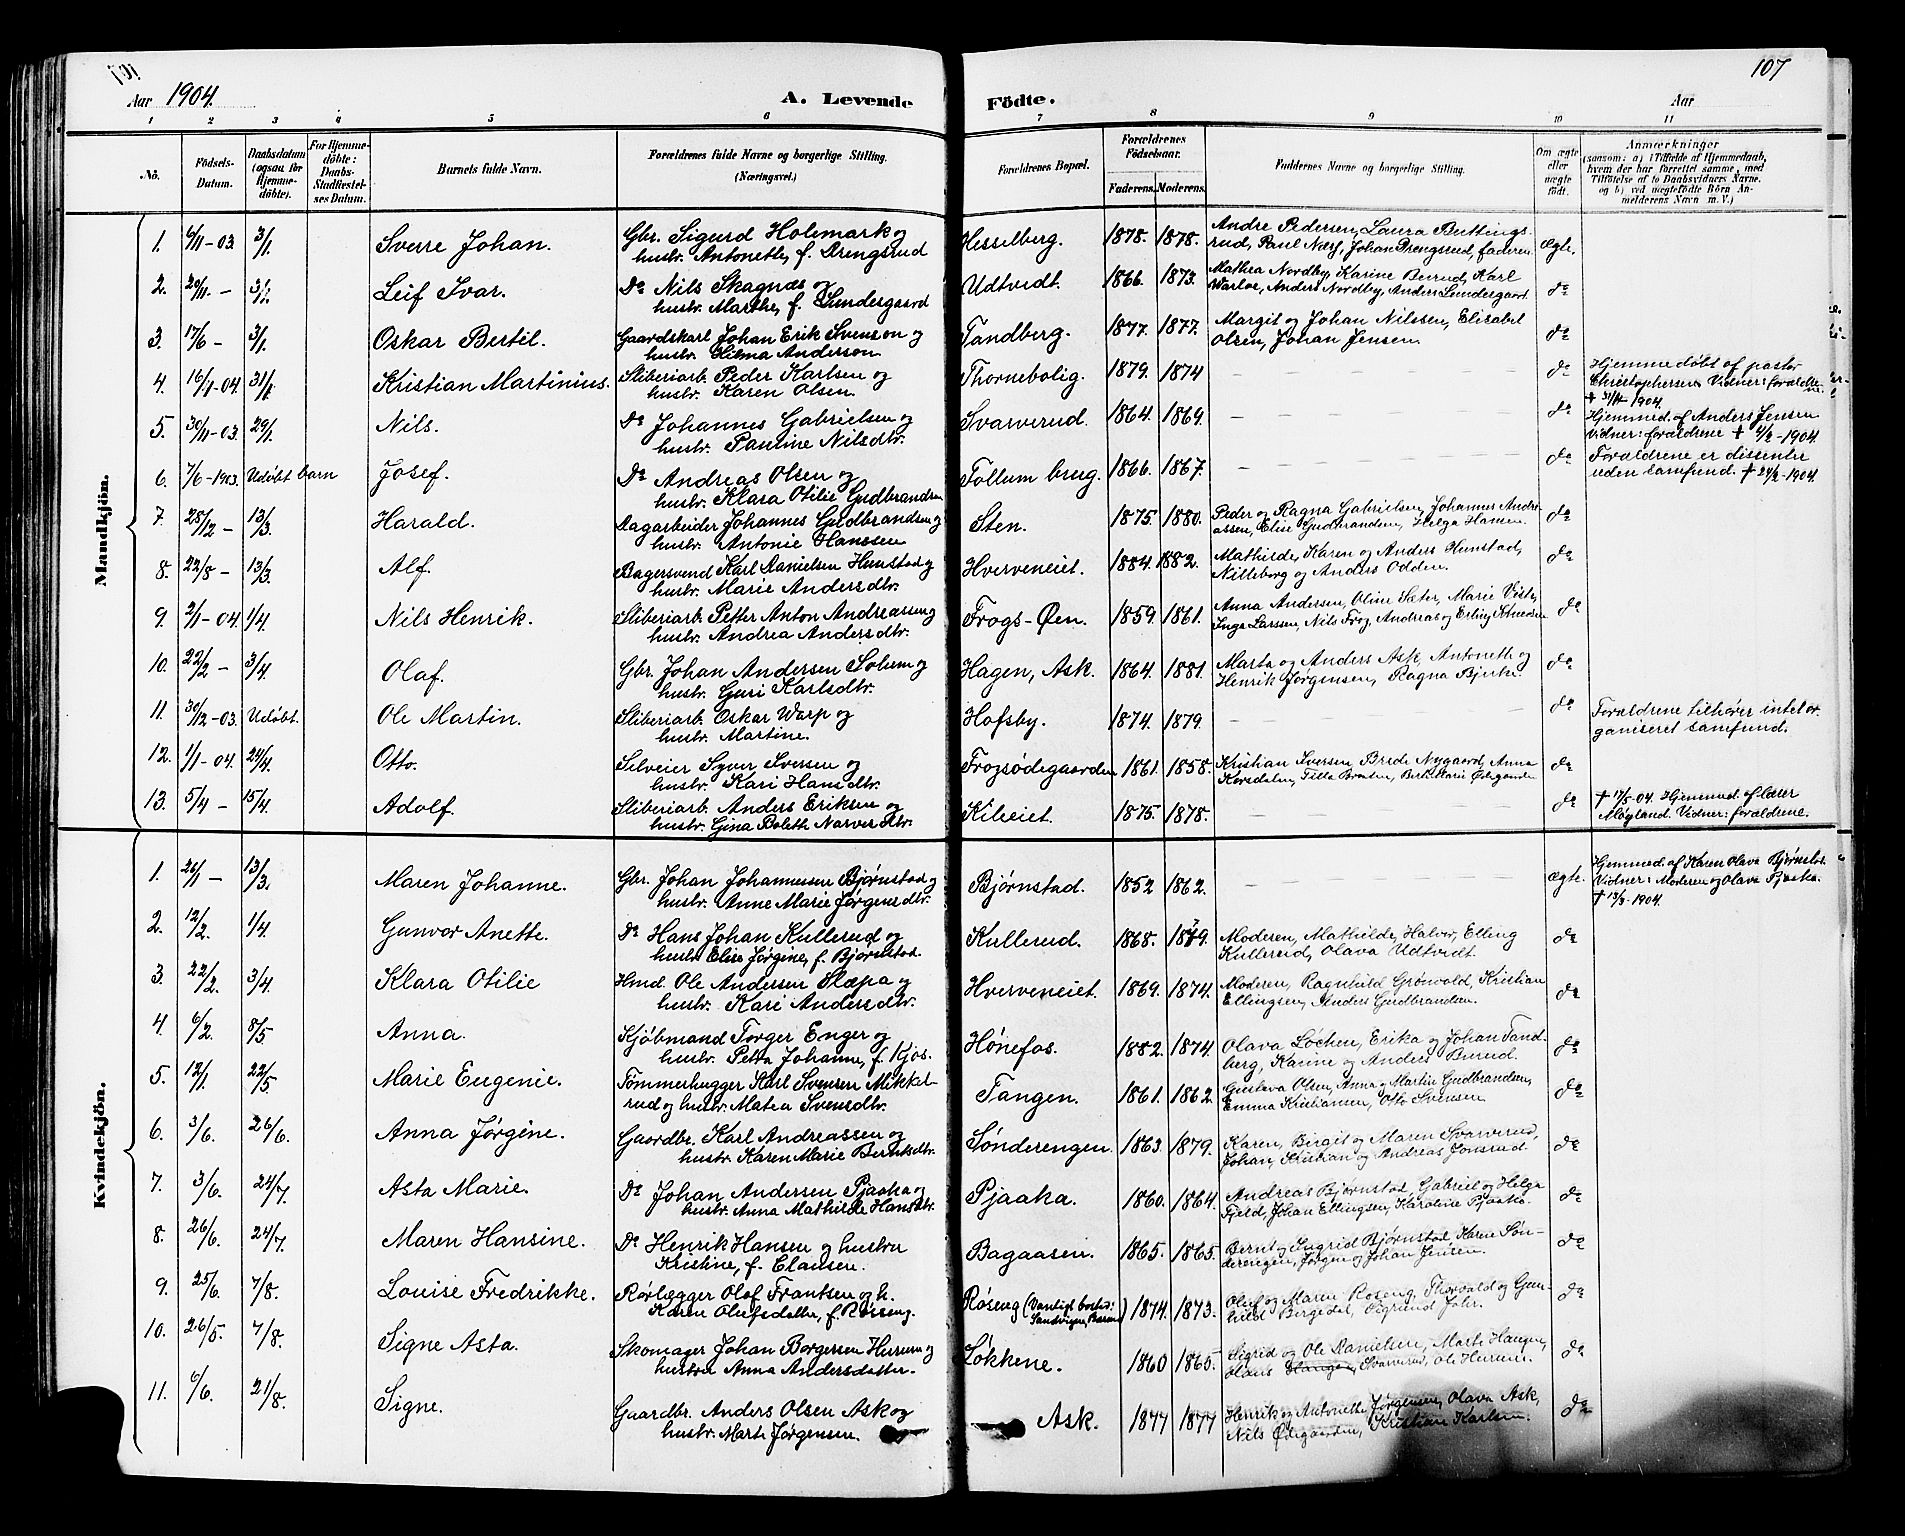 107
Aar 1904.
A. Levende Fødte.
107
Aar
1 2 3 4 5 6 7 8 9 10 11
No. Födsels-Datum. Daabsdatum (ogsaa for Hjemmedöbte). For Hjemmedöbte: Daabs-Stadfæstelses Datum. Barnets fulde Navn. Forældrenes fulde Navne og borgerlige Stilling. (Næringsvei.) Forældrenes Bopæl. Forældrenes Födselsaar. Faderens. Moderens. Faddernes Navne og borgerlige Stilling. Om ægte eller uægte födt. Anmærkninger (saasom: a) i Tilfælde af Hjemmedaab, hvem der har forrettet samme, med Tilföielse af to Daabsvidners Navne. og b) ved uægtefödte Börn Anmelderens Navn m. V.)
Mandkjön.
1. 6/11-03. 3/1. Sverre Johan. Gbr. Sigurd Holemark og Hesselberg. 1878. 1878. Andre Pedersen, Laura Buttings- ægte.
hustr. Antonette, f. Drengsrud rud, Paul Næss, Johan Drengsrud, faderen
2. 20/11 - 3/1. Leif Ivar. Do Nils Skagnæs og Udtvidt. 1866. 1873. Mathea Nordby, Karine Burud, Karl do
hustr. Marthe, f. Lundesgaard Warloe, Anders Nordby, Anders Lundesgaard.
3. 17/6 - 3/1. Oskar Bertil. Gaardskarl Johan Erik Svenson og Tandberg. 1877. 1877. Margit og Johan Nilssen, Elisabet do
hustr. Hilma Anderson. Olsen, Johan Jensen.
4. 16/1-04. 31/1. Kristian Martinius. Sliberiarb. Peder Karlsen og Thornebolig. 1879. 1874 do Hjemmedøbt af pastor
hustr. Karen Olsen. Christophersen Vidner: forældrene
1904.
5. 30/11-03. 29/1. Nils. Do Johannes Gabrielsen og Svarverud. 1864. 1869. do Hjemmed. af Anders Jensen
hustr. Pauline Nilsdtr. Vidner: forældrene † 4/2-1904.
6. 7/6-1903. Udøbt barn Josef. Do Andreas Olsen og Follum brug. 1866. 1867. do Forældrene er dissenter
hustr. Klara Otilie Gudbrandsen uden samfund. † 24/2-1904.
7. 28/12 - 13/3. Harald. Dagarbeider Johannes Guldbrandsen og Sten. 1875. 1880. Peder og Ragna Gabrielsen, Johannes Andre- do
hustr. Antonie Hanssen assen, Elise Gudbrandsen, Helga Hansen.
8. 22/8 - 13/3. Alf. Bagersvend Karl Danielsen Hunstad og Hverveneiet. 1884. 1882. Mathilde, Karen og Anders Hunstad, do
hustr. Marie Andersdtr. Nilleborg og Anders Odden.
9. 2/1-04. 1/4. Nils Henrik. Sliberiarb. Petter Anton Andreassen og Frogs-Øen. 1859. 1861. Anna Andersen, Oline Sæter, Marie do
hustr. Andrea Andersdtr. Inga Larssen, Nils Frog, Andreas og Erling
10. 22/2 - 3/4. Olaf. Gbr. Johan Andersen Solum og Hagen, Ask. 1864. 1881. Marta og Anders Ask, Antonette og do
hustr. Guri Karlsdtr. Henrik Jørgensen, Ragna Bjerke.
11. 30/12-03. Udøbt. Ole Martin. Sliberiarb. Oskar Warp og Hofsby. 1874. 1879. do Forældrene tilhører intet or-
hustr. Martine. ganiseret samfund.
12. 1/1-04. 24/4. Otto. Selveier Syver Iversen og Frogsødegaarden 1861. 1858. Kristian Iversen Brede Nygaard, Anna do
hustr. Kari Hansdtr. Korsdalen, Tilla Braaten, Berthe Marie Ødegaarden
13. 5/4 - 15/4. Adolf. Sliberiarb. Anders Eriksen og Kileiet. 1875. 1878. do † 17/5-04. Hjemmed. af lærer
hustr. Gina Bolette Narvesdtr. Møgland. Vidner: forældrene.
Kvindekjön.
1. 26/1 - 13/3. Maren Johanne. Gbr. Johan Johannessen Bjørnstad og Bjørnstad. 1852 1862. ægte. Hjemmed. af Karen Olava Bjørnstad.
hustr. Anne Marie Jørgensdtr. Vidner: Moderen og Olava Pjaaka.
† 13/3-1904.
2. 12/2. 1/4. Gunvor Anette. Do Hans Johan Kullerud og Kullerud. 1868. 1879. Moderen, Mathilde, Halvor, Elling do
hustr. Elise Jørgine, f. Bjørnstad. Kullerud, Olava Udtvidt.
3. 22/2. 3/4. Klara Otilie Hmd. Ole Andersen Slæpa og Hverveneiet. 1869. 1874. Moderen, Ragnhild Grønvold, Kristian do
hustr. Kari Andersdtr. Ellingsen, Anders Gudbrandsen.
4. 6/2. 8/5. Anna. Kjøbmand Torger Enger og Hønefos. 1882. 1874. Olava Løchen, Erika og Johan Tand- do
hustr. Petra Johanne, f. Kjos. berg, Karine og Anders Burud.
5. 12/1. 22/5. Marie Eugenie. Tømmerhugger Karl Svensen Mikkel- Tangen. 1861. 1862. Gustava Olsen, Anna og Martin Gudbrandsen, do
rud og hustr. Matea Svensdtr. Emma Kristiansen, Otto Svensen.
6. 3/6. 26/6. Anna Jørgine. Gaardbr. Karl Andreassen og Sønderengen. 1863. 1879. Karen, Birgit og Maren Svarverud, do
hustr. Karen Marie Berntsdtr. Johan, Kristian og Andreas Jonsrud.
7. 3/6. 24/7. Asta Marie. Do Johan Andersen Pjaaka og Pjaaka. 1860. 1864. Andreas Bjørnstad, Gabriel og Helga do
hustr. Anna Mathilde Hansdtr. Fjeld, Johan Ellingsen, Karoline Pjaaka.
8. 26/6. 24/7. Maren Hansine. Do Henrik Hansen og hustru Bagaasen. 1865. 1865. Bernt og Ingrid Bjørnstad, Karen Søn- do
Kristine, f. Clausen. derengen, Jørgen og Johan Jensen.
9. 25/6. 7/8. Louise Fredrikke. Rørlægger Olaf Frantsen og h. Røseng (Vanligt bosted: Sandvigen, Bærum) 1874. 1873. Oluf og Maren Røseng, Thorvald og Gun- do
Karen Olufsdatter, f. Røseng. hild Birgedal, Sigrund
10. 26/5. 7/8. Signe Asta. Skomager Johan Borgersen Herrum og Løkkene. 1860 1865. Sigrid og Ole Danielsen, Marte Haugen, do
hustru Anna Andersdatter. Olaus Svarverud, Ole Herrum.
11. 6/6. 21/8. Signe. Gaardbr. Anders Olsen Ask og Ask. 1877 1877 Henrik og Antonette Jørgensen, Olava Ask, do
hustr. Marte Jørgensen. Nils Ødegaarden, Kristian Karlsen.